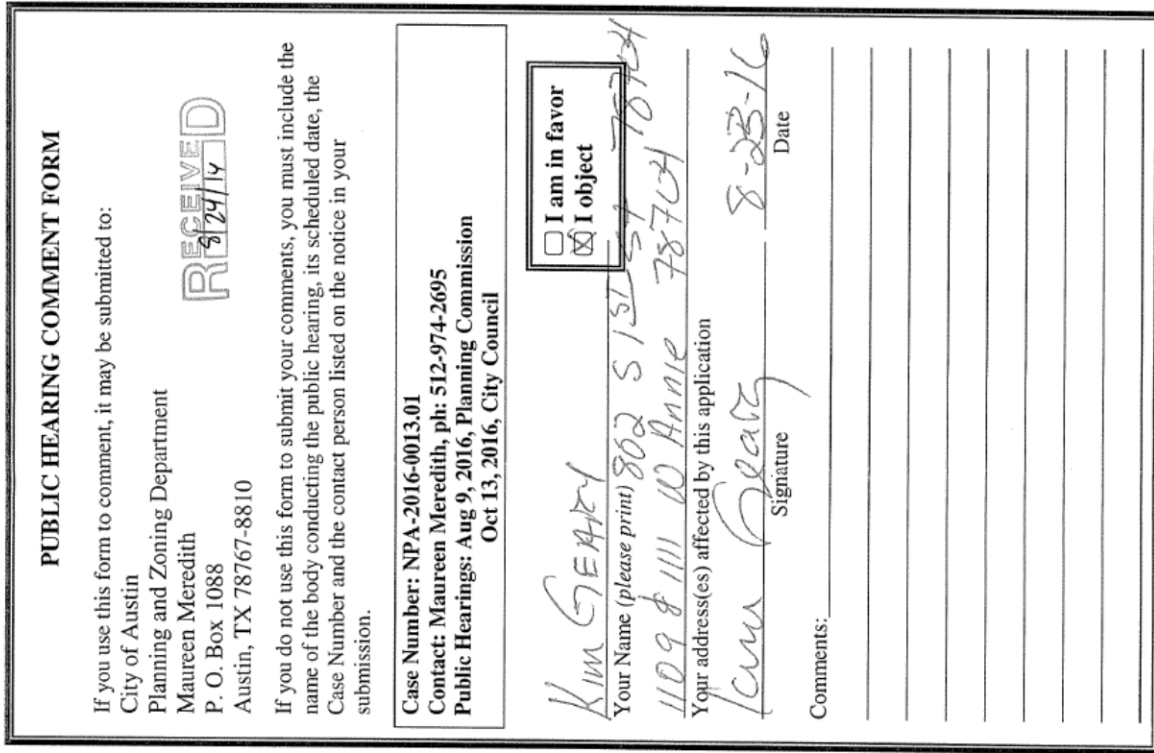 PUBLIC HEARING COMMENT FORM
If you use this form to comment, it may be submitted to:
City of Austin
Planning and Zoning Department
Maureen Meredith
P. O. Box 1088
Austin, TX 78767-8810
RECEIVED
8/24/14
If you do not use this form to submit your comments, you must include the
name of the body conducting the public hearing, its scheduled date, the
Case Number and the contact person listed on the notice in your
submission.
Case Number: NPA-2016-0013.01
Contact: Maureen Meredith, ph: 512-974-2695
Public Hearings: Aug 9, 2016, Planning Commission
Oct 13, 2016, City Council
☐ I am in favor
☒ I object
Kim GEARY
Your Name (please print) 802 S 1ST St 78704
1109 & 1111 W Annie 78704
Your address(es) affected by this application
Geary 8-23-16
Signature Date
Comments: